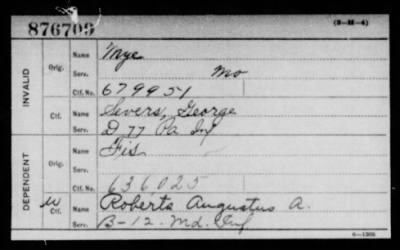 876709
(3-M-4)
INVALID
Orig.
Name Mye
Serv. Mo
Ctf. No. 679951
Ctf.
Name Severs, George
Serv. D 77 Pa Inf
DEPENDENT
Orig.
Name Fis
Serv.
Ctf. No. 636025
Ctf.
Name Roberts Augustus A.
Serv. B-12. Md. Inf